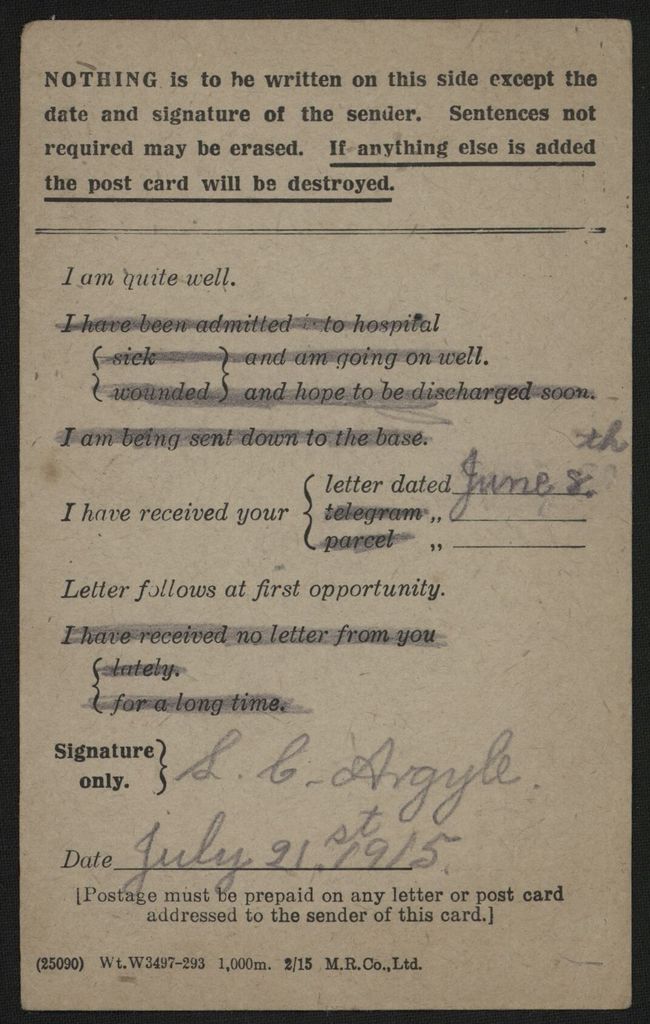 NOTHING is to be written on this side except the
date and signature of the sender. Sentences not
required may be erased. If anything else is added
the post card will be destroyed.
I am quite well.
I have been admitted into hospital
{ sick } and am going on well.
{ wounded } and hope to be discharged soon.
I am being sent down to the base.
I have received your { letter dated June 8th
telegram ,,
parcel ,,
Letter follows at first opportunity.
I have received no letter from you
{ lately.
{ for a long time.
Signature only. } S. C. Argyle.
Date July 21st, 1915.
[Postage must be prepaid on any letter or post card
addressed to the sender of this card.]
(25090) Wt.W3497-293 1,000m. 2/15 M.R.Co.,Ltd.